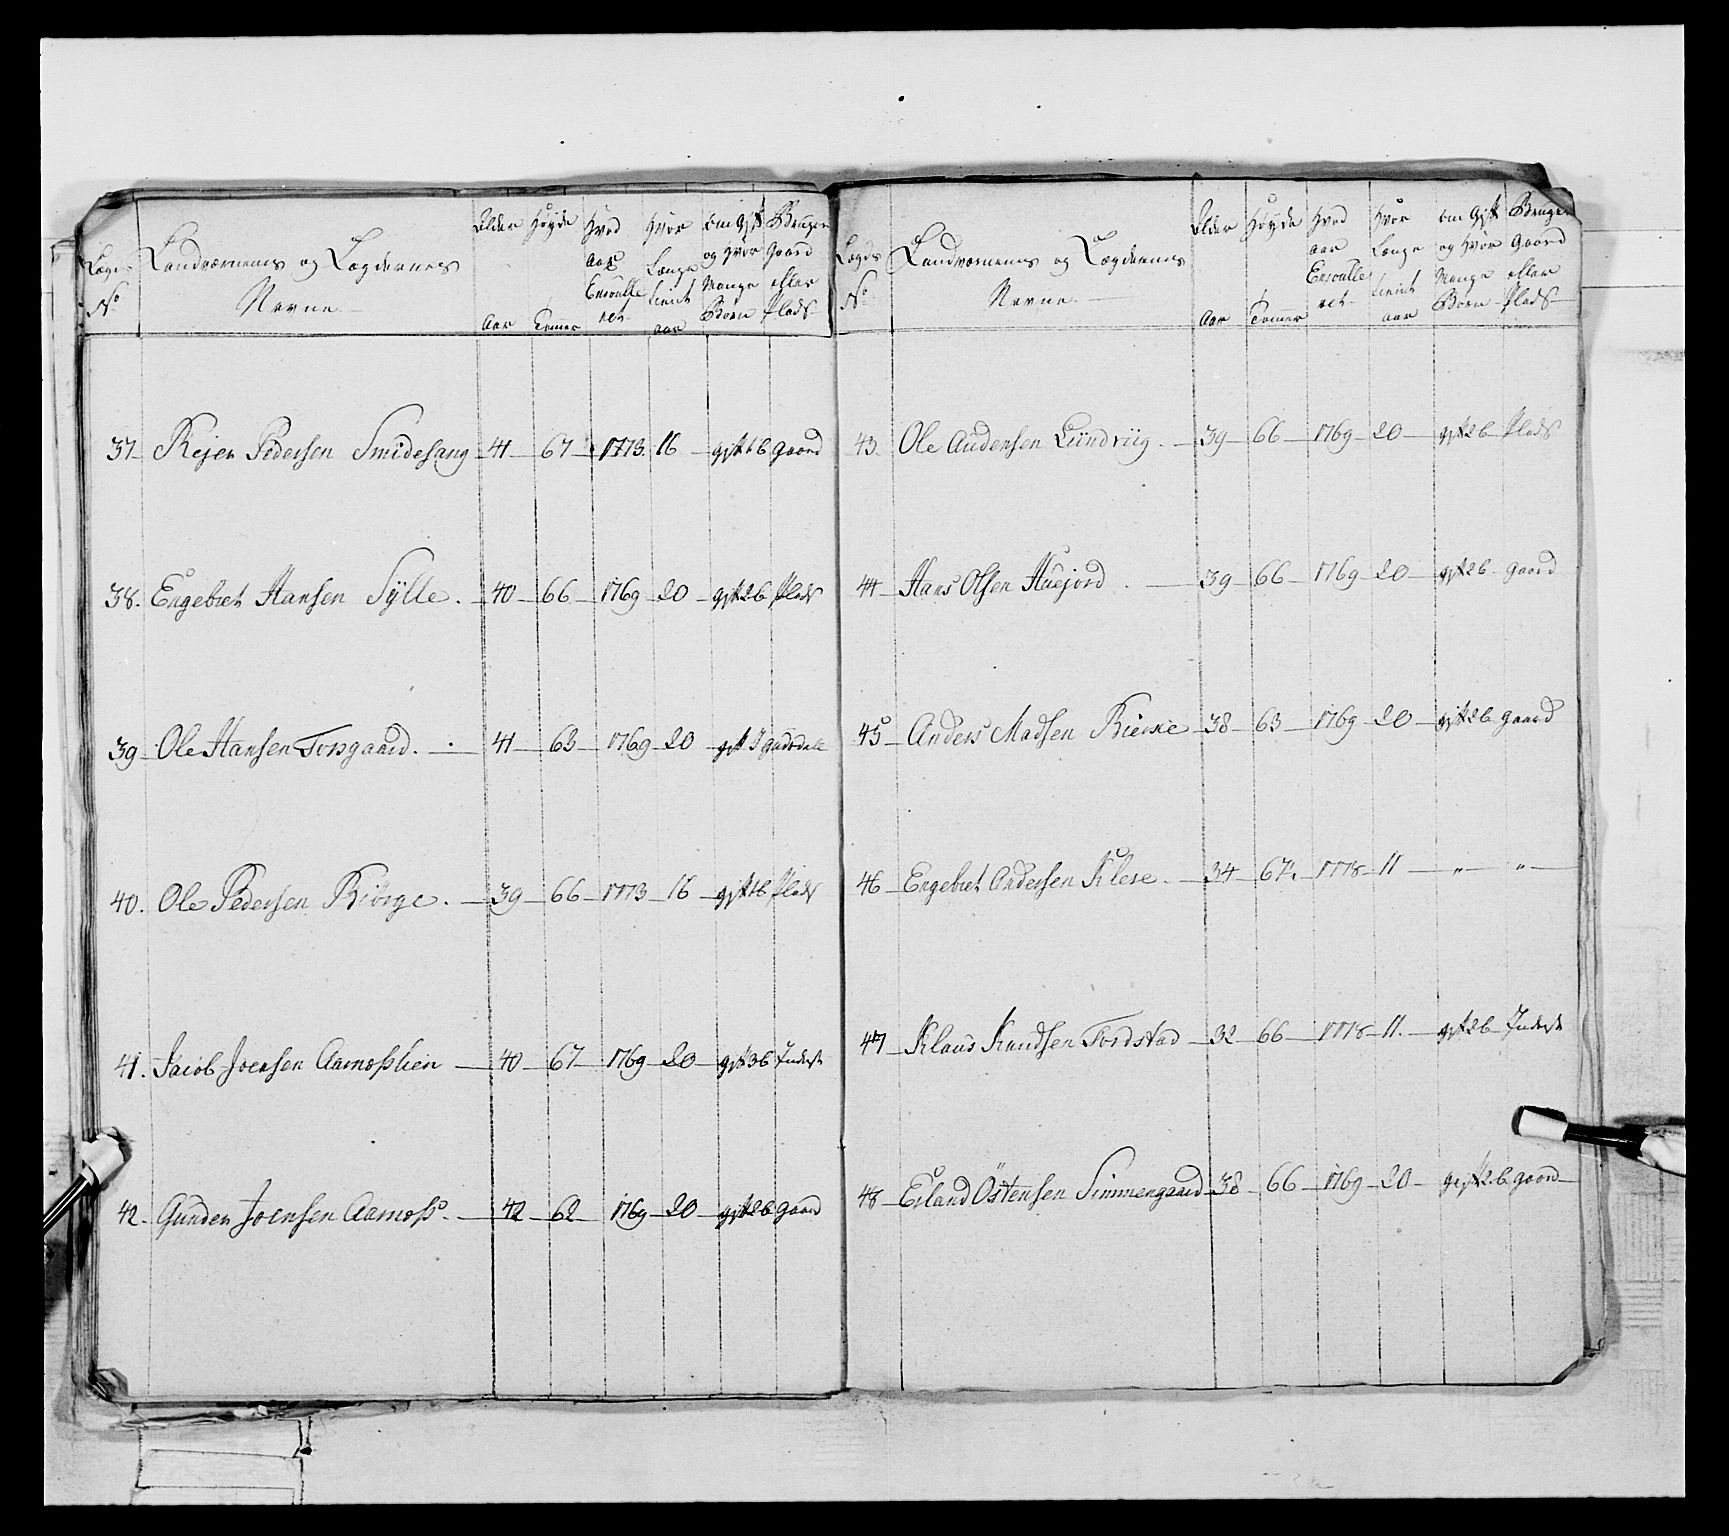 Lægs No
Landværnens og Lægdernes Navne
Alder Aar
Høyde Tomer
Hvad aar Enroulleret
Hvor Længe tient aar
Om Gift og Hvor Mange Børn
Bruger Gaard eller Plads
37 Rejer Pedersen Smidesang 41 67 1773 16 gift 1 b gaard
38. Engebret Hansen Sylle. 40 66 1769 20 gift 2 b Plads
39 Ole Hansen Torsgaard. 41 63 1769 20 gift
40. Ole Pedersen Biörge. 39 66 1773 16 gift 1 b Plads
41. Jacob Joensen Aamoßlien 40 67 1769 20 gift 3 b Inderst
42. Gunder Joensen Aamoß. 42 62 1769 20 gift 2 b gaard
Lægs No
Landværnens og Lægdernes Navne
Alder Aar
Høyde Tomer
Hvad aar Enroulleret
Hvor Længe tient aar
Om Gift og Hvor Mange Børn
Bruger Gaard eller Plads
43 Ole Andersen Lundviig. 39 66 1769 20 gift 2 b Plads
44 Hans Olsen Huejord. 39 66 1769 20 gift 2 b gaard
45 Anders Madsen 38 63 1769 20 gift 2 b gaard
46 Engebret Andersen Kleve. 34 1778 11 " "
47 Klaus Knudsen Tordstad 32 66 1778 11. gift 2 b Inderst
48 Erland Östensen Simmengaard 38 66 1769 20 gift 2 b gaard